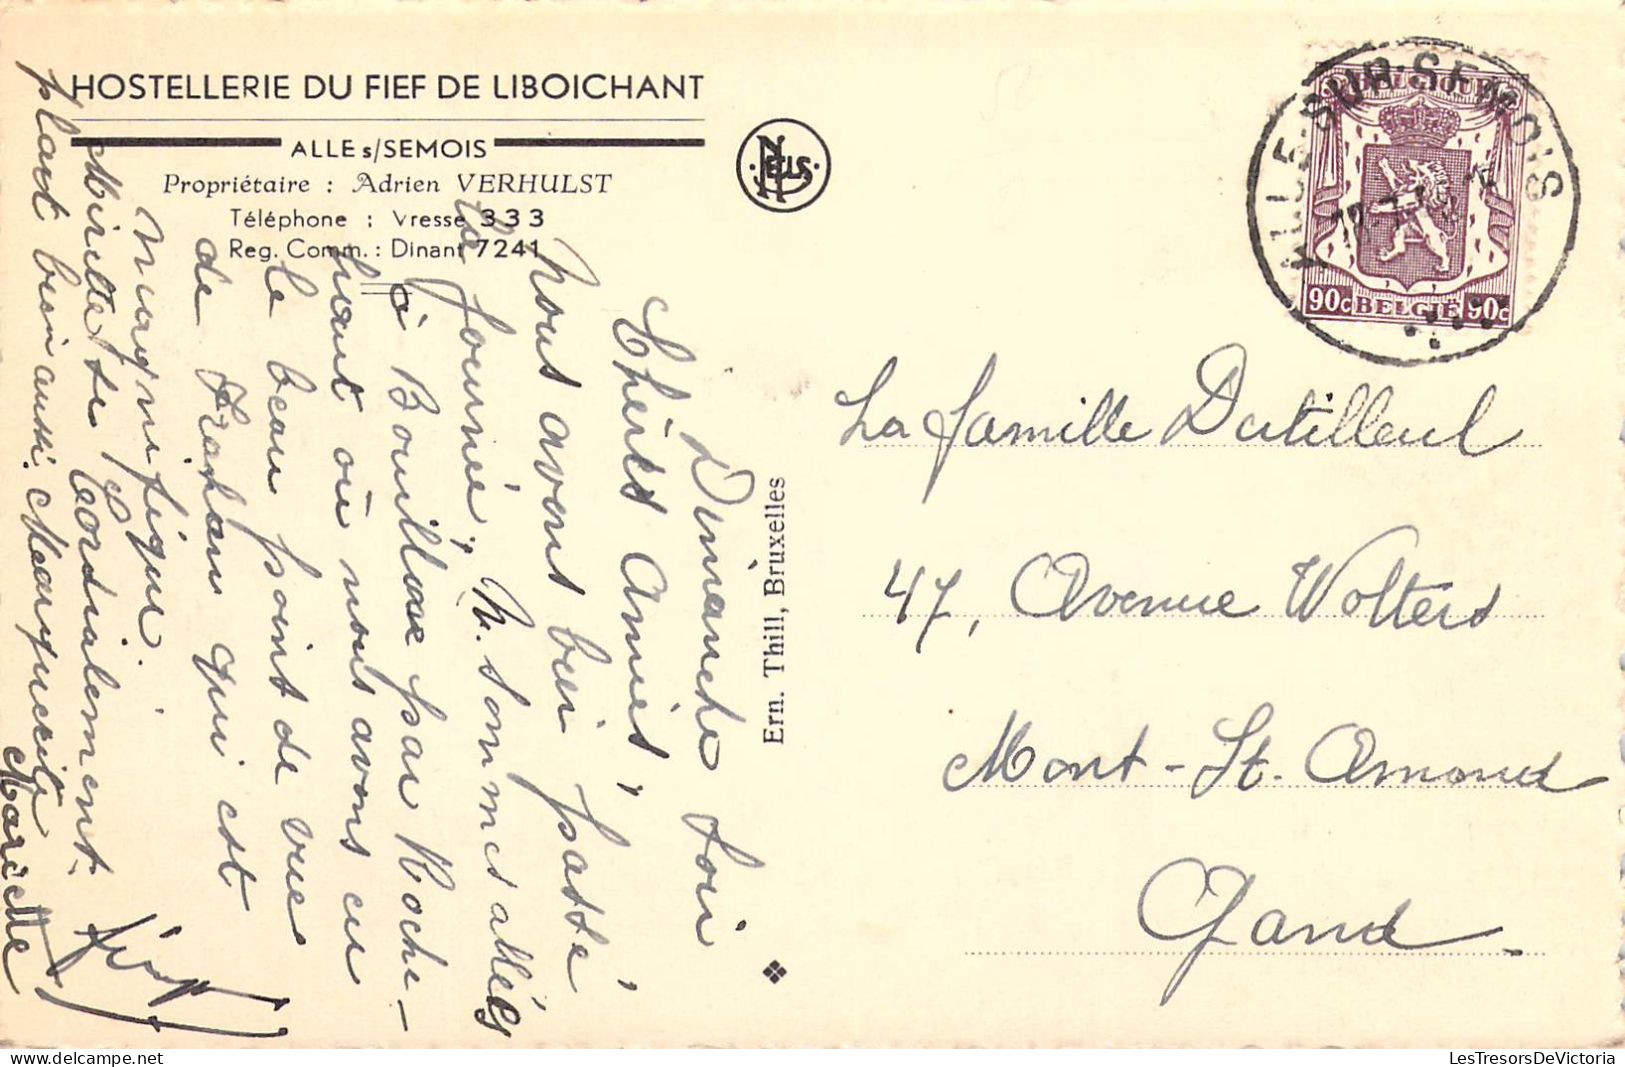 HOSTELLERIE DU FIEF DE LIBOICHANT
ALLE s/SEMOIS
Propriétaire : Adrien VERHULST
Téléphone : Vresse 333
Reg. Comm. : Dinant 7241
NELS
Ern. Thill, Bruxelles
ALLE-SUR-SEMOIS
90c BELGIË 90c
La famille Dutilleul
47, Avenue Wolters
Mont-St. Amand
Gand.
Dimanche soir
Chères Amies,
Nous avons bien passé
la journée, N. sommes allés
à Bouillon par Roche-
haut où nous avons eu
le beau point de vue
de Frahan qui est
magnifique.
Mirette se
plait bien aussi. Marguerite
Cordialement.
Mariette